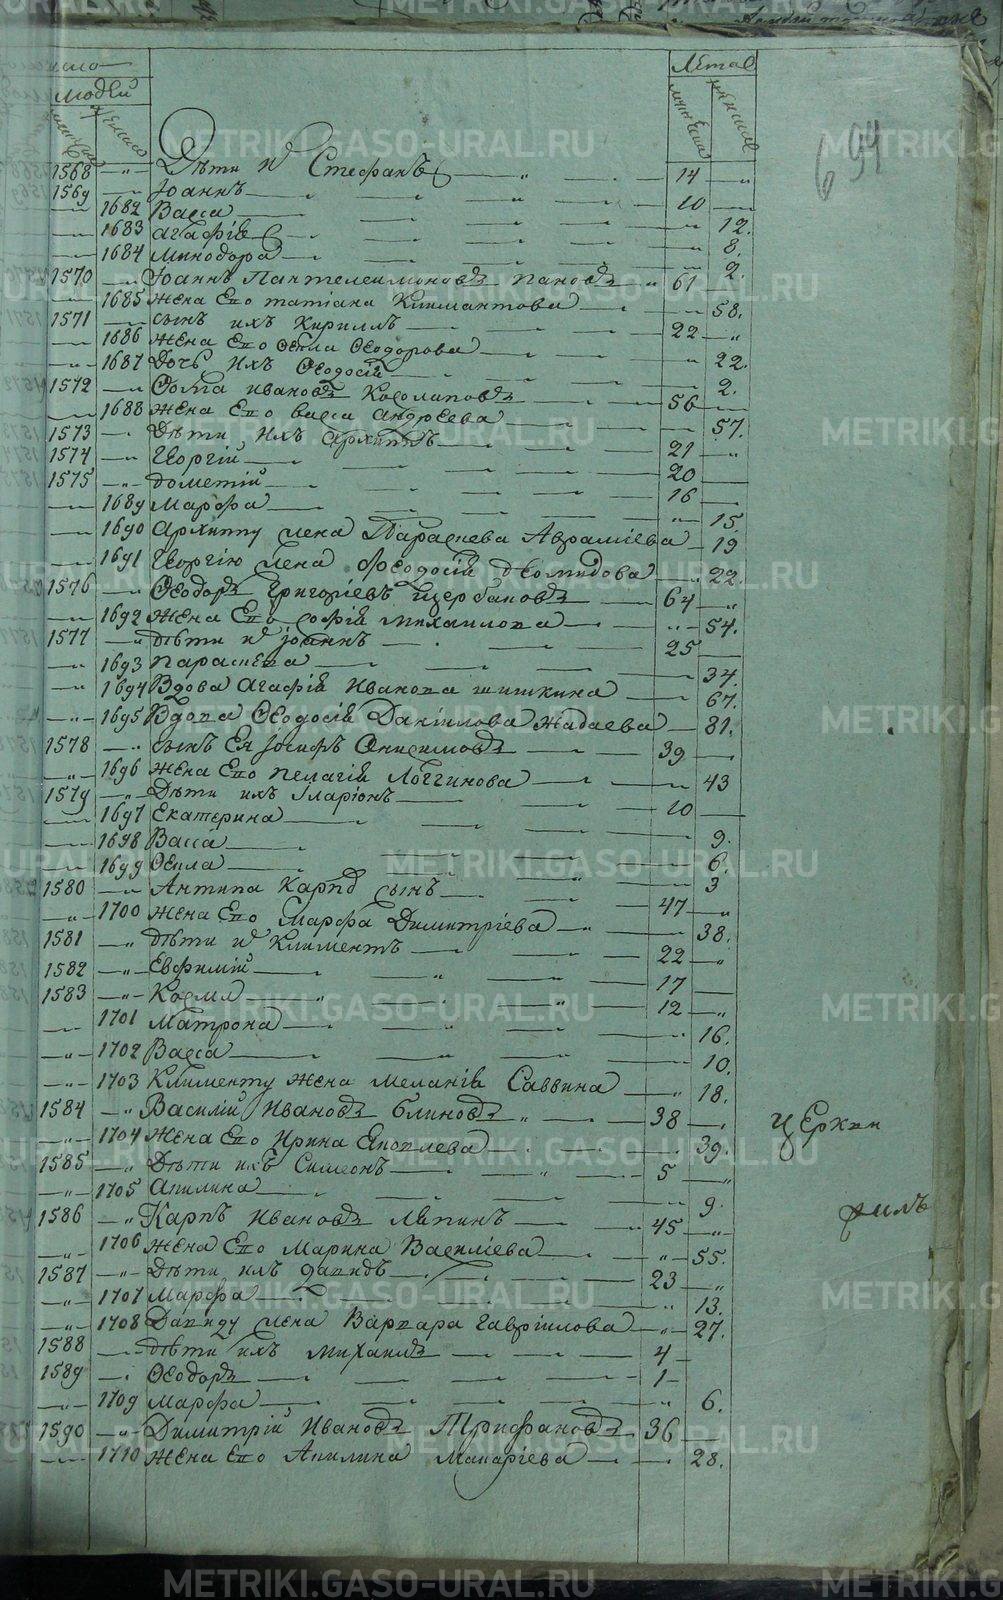 число
людей
Лѣта
мужеска
женска
694
1568 Дѣти ихъ Стефанъ 14
1569 Іоаннъ 10
1682 Васса 12.
1683 Агафія 8.
1684 Минодора 2.
1570 Іоаннъ Пантелеимоновъ Пановъ 61
1685 жена Его татіана Климантова 58.
1571 сынъ ихъ Кириллъ 22
1686 жена Его Ѳекла Ѳеодорова 22.
1687 Дочь ихъ Ѳеодосія 2.
1572 Ѳома ивановъ Косолаповъ 56
1688 жена Его васса андреева 57.
1573 Дѣти ихъ архиппъ 21
1574 Георгій 20
1575 дометій 16
1689 Марѳа 15.
1690 архиппу жена Параскева Авраміева 19
1691 Георгію жена Феодосія діомидова 22.
1576 Ѳеодоръ Григоріевъ щербаковъ 64
1692 жена Его софія михаилова 54.
1577 дѣти ихъ іоаннъ 25
1693 параскева 34.
1694 Вдова Агафія Иванова шишкина 67.
1695 Вдова Ѳеодосія Даніилова Жадаева 81.
1578 сынъ Ея Іосифъ Онисимовъ 39
1696 жена Его пелагія Логгинова 43
1579 Дѣти ихъ Іларіонъ 10
1697 Екатерина 9.
1698 Васса 6.
1699 Ѳекла 3
1580 Антипа Карповъ сынъ 47
1700 жена Его Марфа Димитріева 38.
1581 дѣти ихъ Климентъ 22
1582 Евфимій 17
1583 Косма 12
1701 Матрона 16.
1702 Васса 10.
1703 Клименту жена меланія Саввина 18.
1584 Василій Ивановъ блиновъ 38
1704 жена Его Ирина Яковлева 39.
1585 Дѣти ихъ Симеонъ 5
1705 Акилина 9.
1586 Карпъ Ивановъ Ляпинъ 45
1706 жена Его Марина Василіева 55.
1587 Дѣти ихъ давидъ 23
1707 Марѳа 13.
1708 Давиду жена Варвара Гавріилова 27.
1588 дѣти ихъ михаилъ 4
1589 Ѳеодоръ 1
1709 марѳа 6.
1590 Димитрій Ивановъ Трифановъ 36
1710 жена Его Акилина макаріева 28.
церкви
METRIKI.GASO-URAL.RU